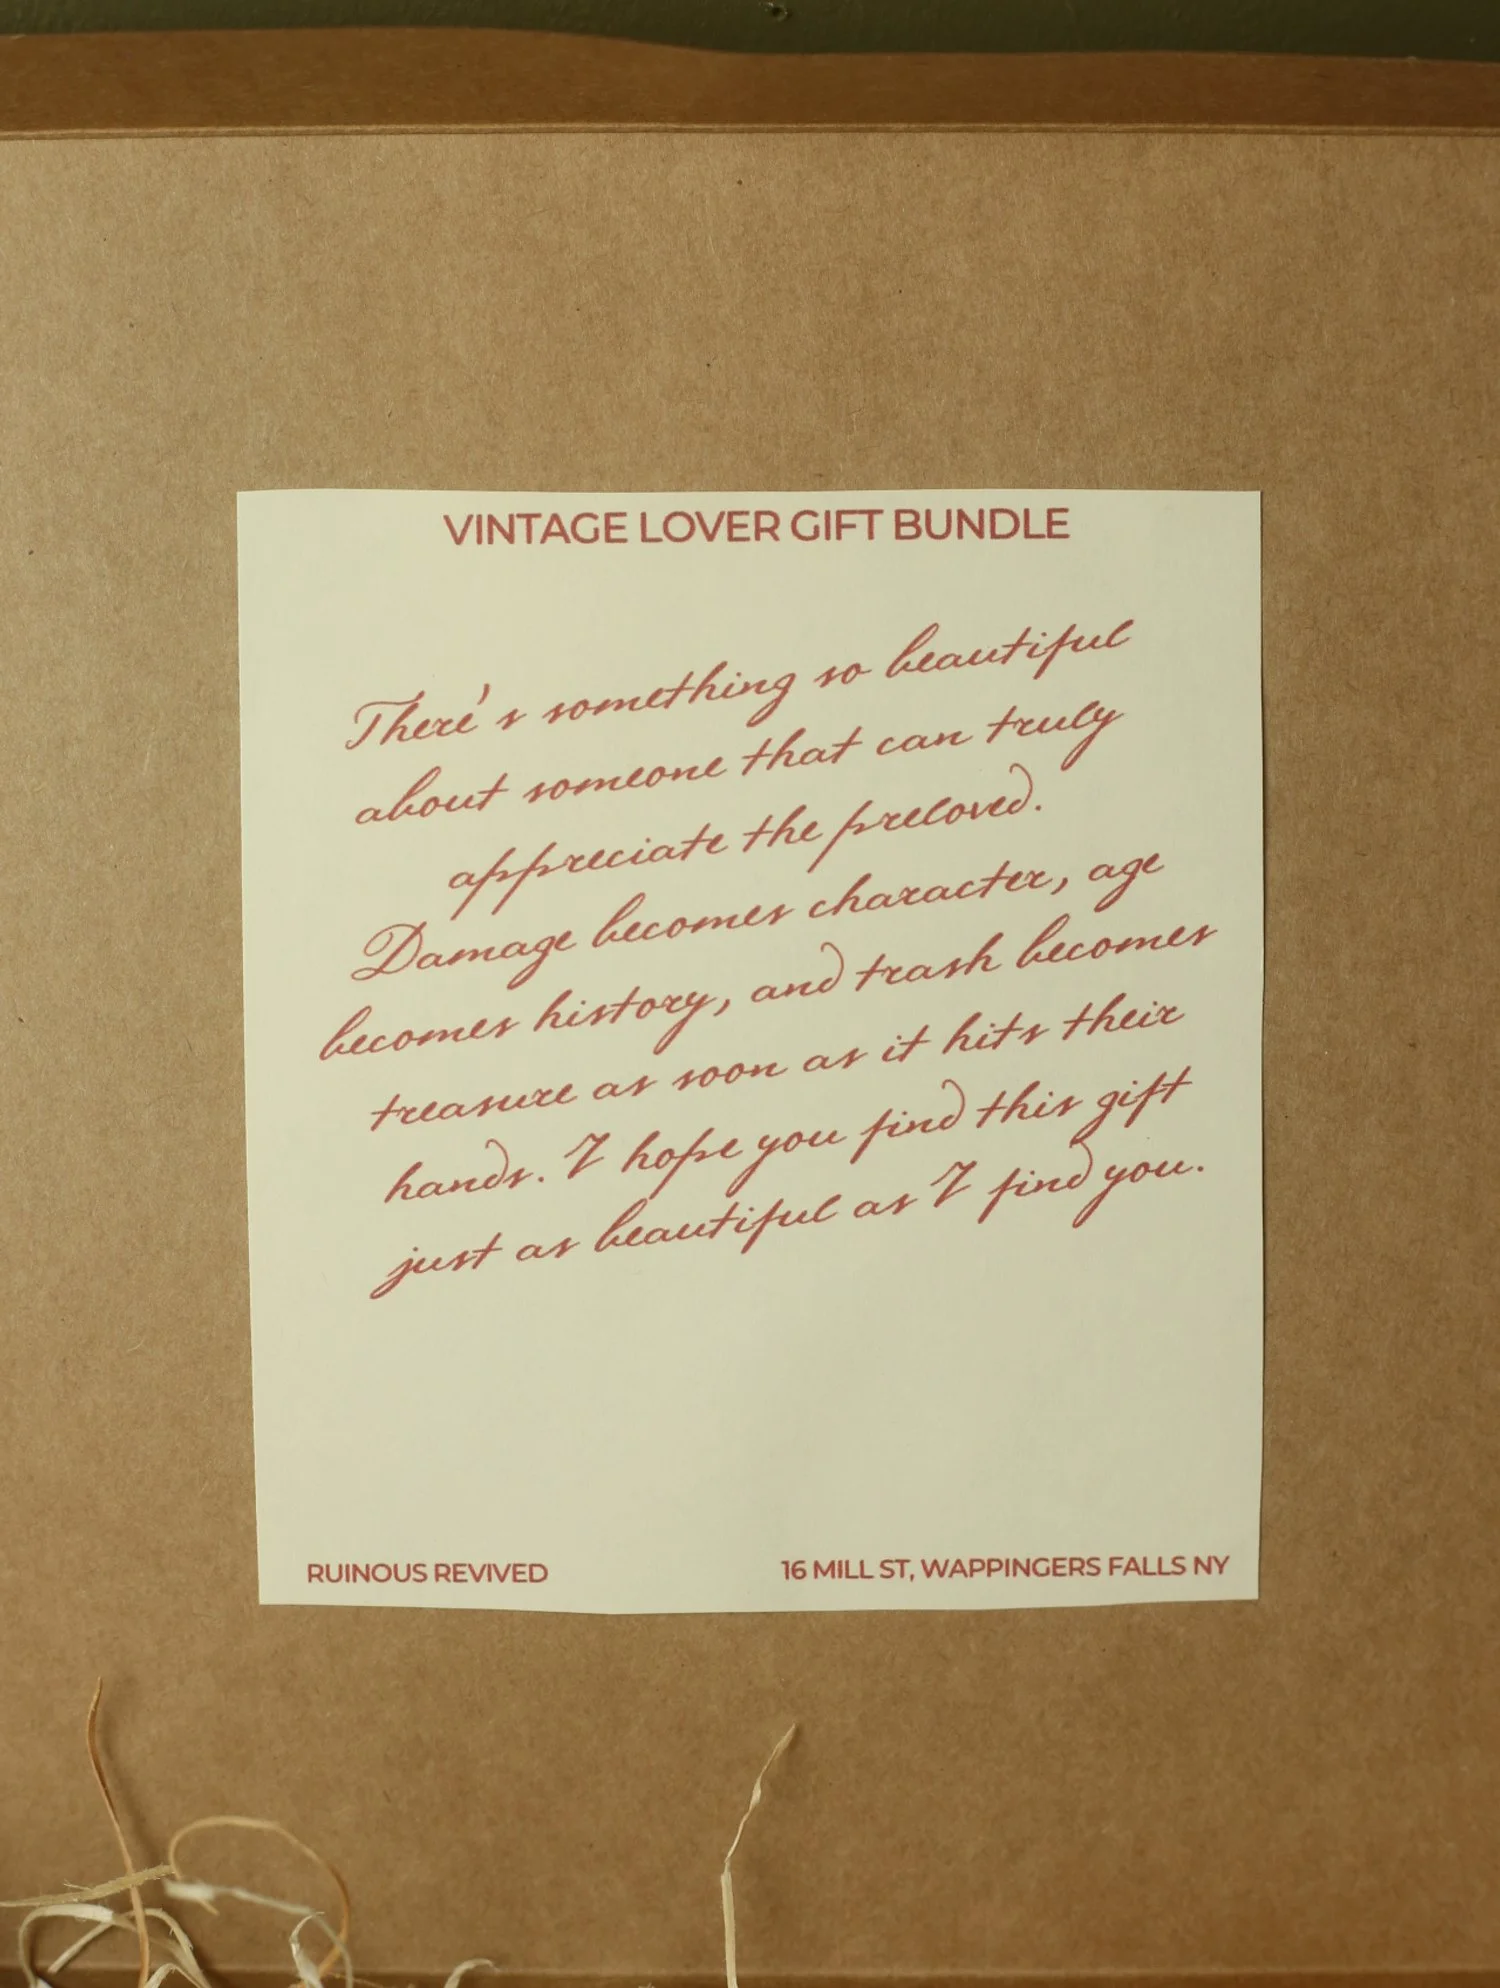 VINTAGE LOVER GIFT BUNDLE
There's something so beautiful
about someone that can truly
appreciate the preloved.
Damage becomes character, age
becomes history, and trash becomes
treasure as soon as it hits their
hands. I hope you find this gift
just as beautiful as I find you.
RUINOUS REVIVED
16 MILL ST, WAPPINGERS FALLS NY